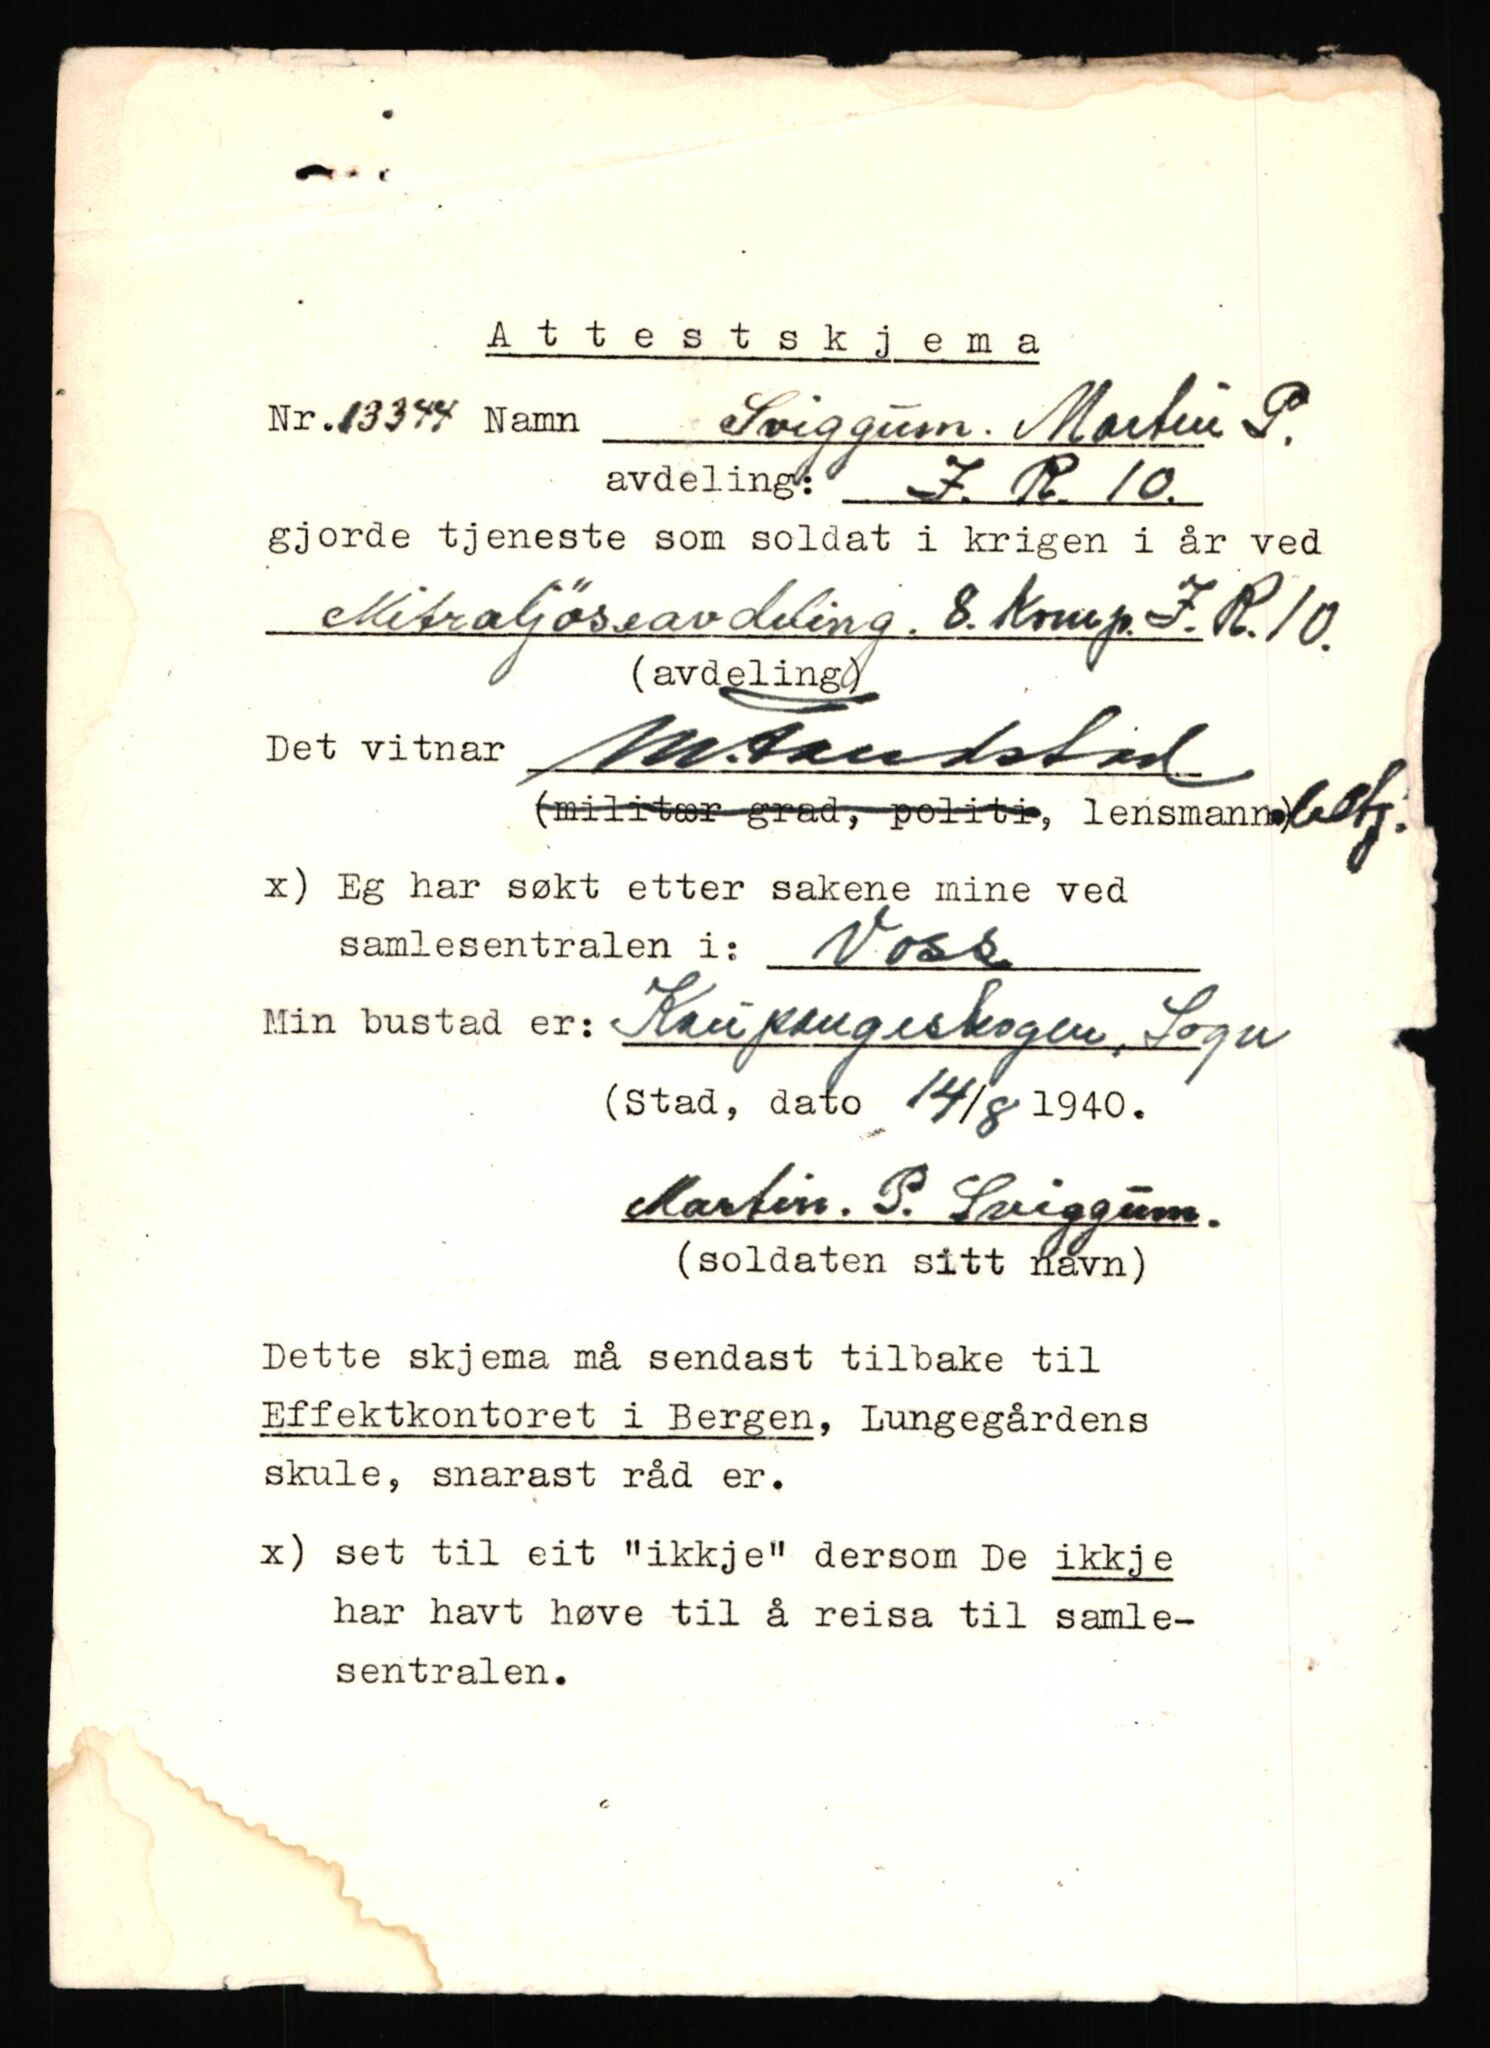 Attestskjema
Nr. 13344 Namn Sviggum. Martin P.
avdeling: I. R. 10.
gjorde tjeneste som soldat i krigen i år ved
Mitraljöseavdeling. 8. Komp. I. R. 10.
(avdeling)
Det vitnar M. Tandstad
(militær grad, politi, lensmann.) betj.
x) Eg har søkt etter sakene mine ved
samlesentralen i: Voss.
Min bustad er: Kaupangeskogen, Sogn
(Stad, dato 14/8 1940.
Martin. P. Sviggum.
(soldaten sitt navn)
Dette skjema må sendast tilbake til
Effektkontoret i Bergen, Lungegårdens
skule, snarast råd er.
x) set til eit "ikkje" dersom De ikkje
har havt høve til å reisa til samle-
sentralen.